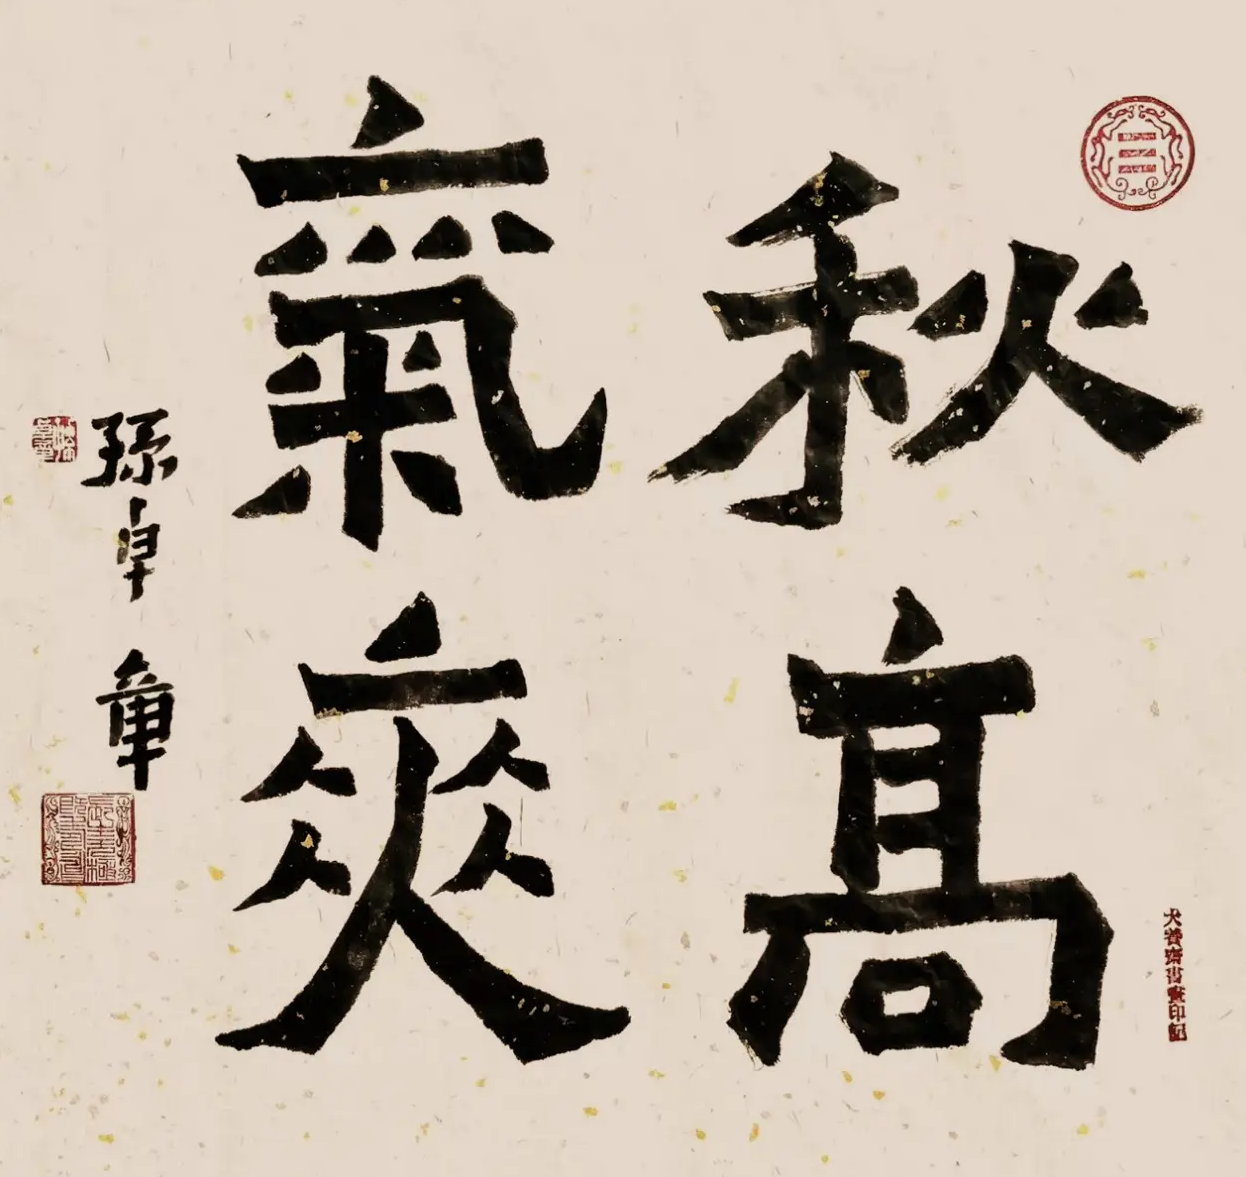 秋髙
氣爽
孫卓章
養齋書畫印記